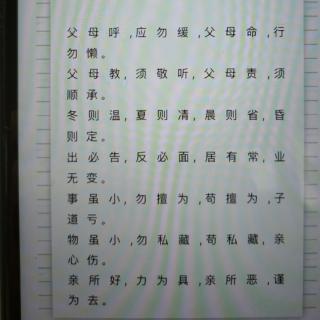 父母呼,应勿缓,父母命,行
勿懒。
父母教,须敬听,父母责,须
顺承。
冬则温,夏则凊,晨则省,昏
则定。
出必告,反必面,居有常,业
无变。
事虽小,勿擅为,苟擅为,子
道亏。
物虽小,勿私藏,苟私藏,亲
心伤。
亲所好,力为具,亲所恶,谨
为去。